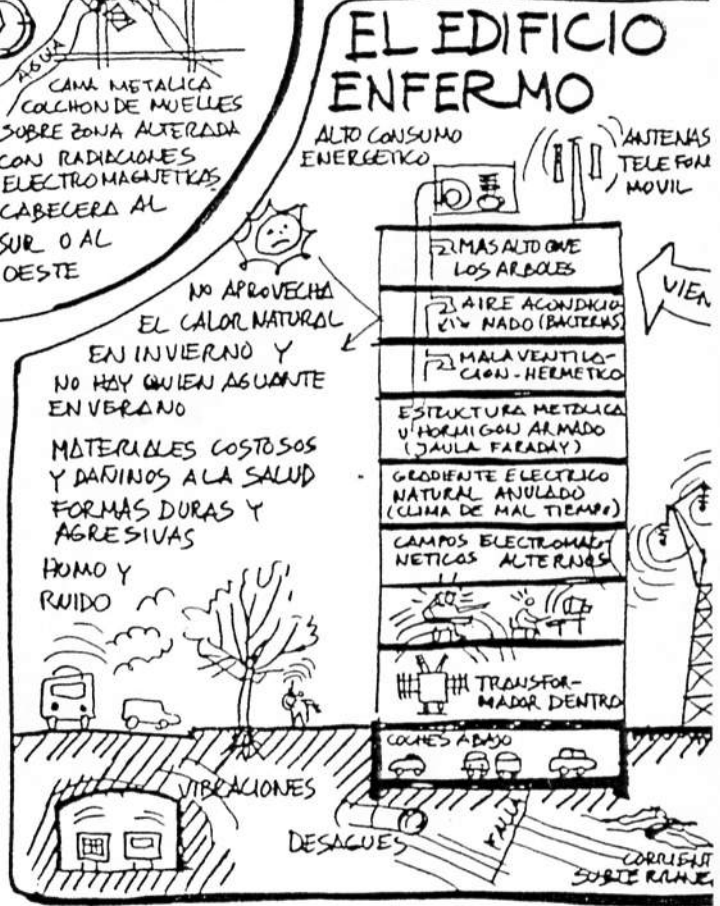 AGUA
CAMA METALICA
COLCHON DE MUELLES
SOBRE ZONA ALTERADA
CON RADIACIONES
ELECTROMAGNETICAS
CABECERA AL
SUR O AL
OESTE
EL EDIFICIO
ENFERMO
ALTO CONSUMO
ENERGETICO
ANTENAS
TELEFON
MOVIL
MAS ALTO QUE
LOS ARBOLES
AIRE ACONDICIO
NADO (BACTERIAS)
MALA VENTILA-
CION - HERMETICO
ESTRUCTURA METALICA
U HORMIGON ARMADO
(JAULA FARADAY)
GRADIENTE ELECTRICO
NATURAL ANULADO
(CLIMA DE MAL TIEMPO)
CAMPOS ELECTROMAG
NETICOS ALTERNOS
TRANSFOR-
MADOR DENTRO
COCHES ABAJO
VIEN
NO APROVECHA
EL CALOR NATURAL
EN INVIERNO Y
NO HAY QUIEN AGUANTE
EN VERANO
MATERIALES COSTOSOS
Y DAÑINOS A LA SALUD
FORMAS DURAS Y
AGRESIVAS
HUMO Y
RUIDO
VIBRACIONES
DESAGUES
FALLA
CORRIENT
SUBTERRANE